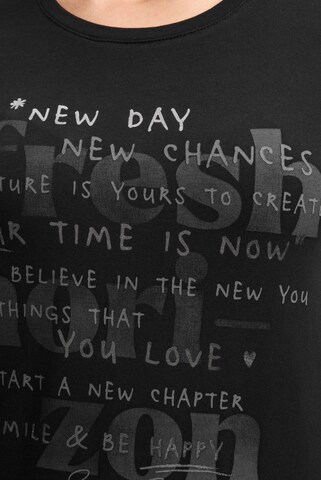 *NEW DAY
NEW CHANCES
TURE IS YOURS TO CREAT
R TIME IS NOW"
BELIEVE IN THE NEW YOU
THINGS THAT
YOU LOVE ♥
TART A NEW CHAPTER
MILE & BE HAPPY
fresh
hori-
zon